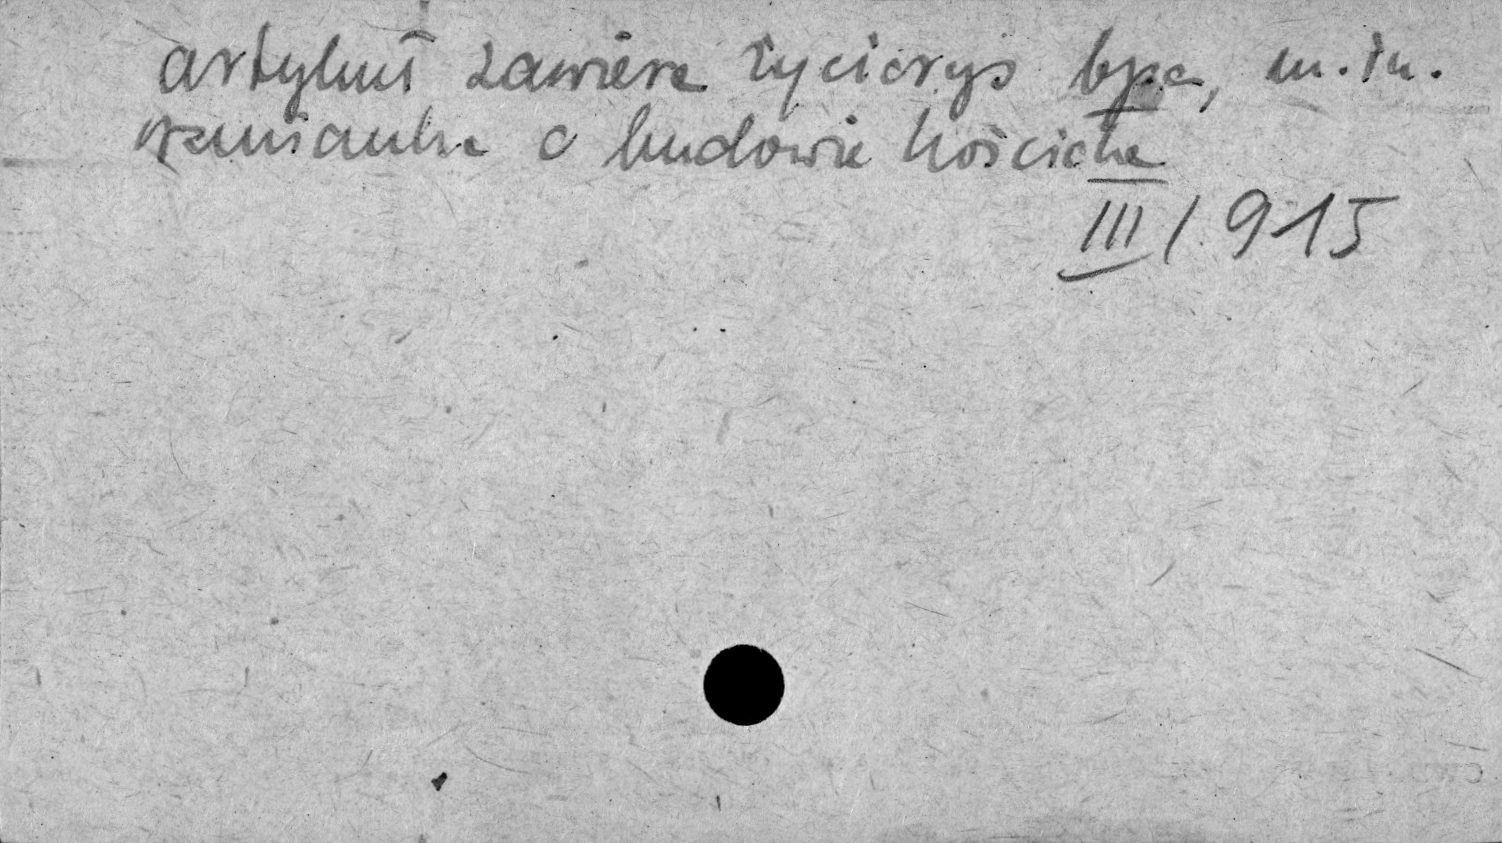 artykuł zawiera życiorys bpa, m.in.
wzmianka o budowie kościoła
III / 915